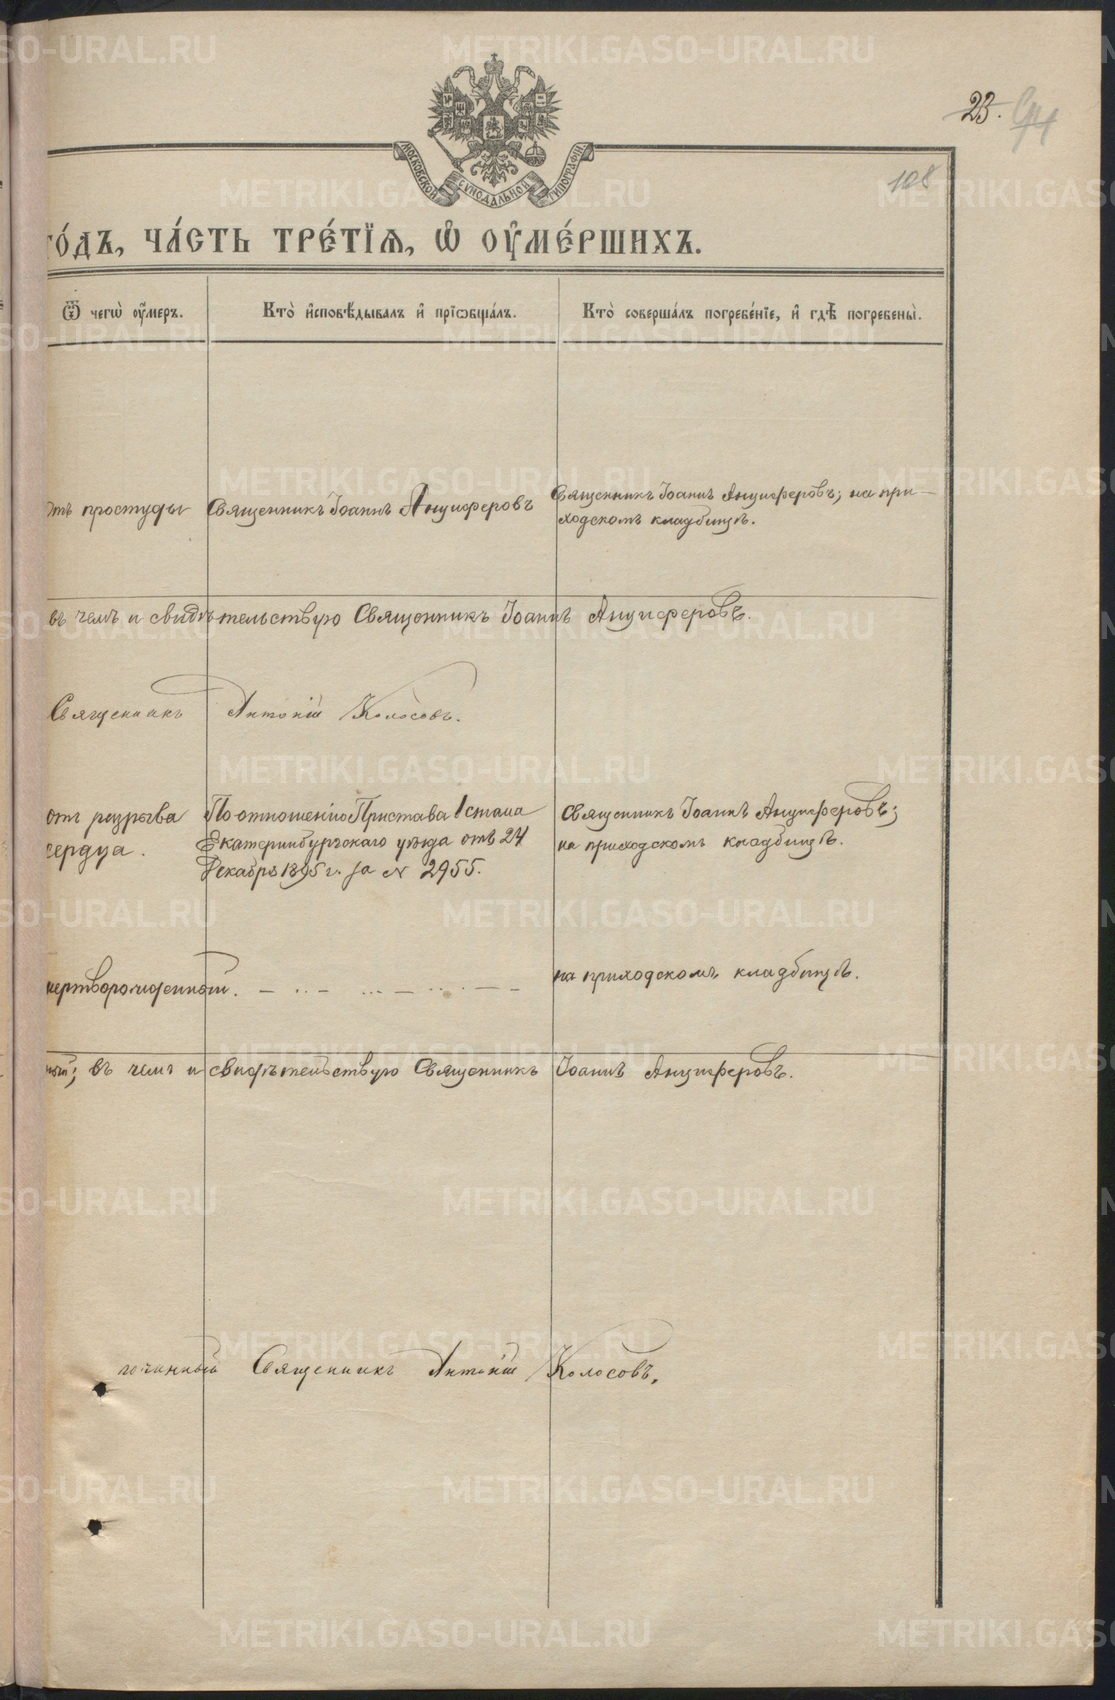 23.
108
МОСКОВСКОЙ СѴНОДАЛЬНОЙ ТИПОГРАФІИ
го́дъ, ча́сть тре́тїѧ, ѡ҆ ᲂу҆ме́ршихъ.
Ѿ чегѡ̀ ᲂу҆меръ.
Кто̀ и҆сповѣ́дывалъ и҆ прїѡбща́лъ.
Кто̀ соверша́лъ погребе́нїе, и҆ гдѣ̀ погребены̀.
отъ простуды
Священникъ Іоаннъ Анциферовъ
Священникъ Іоаннъ Анциферовъ; на при-
ходскомъ кладбищѣ.
въ чемъ и свидѣтельствую Священникъ Іоаннъ Анциферовъ.
Священникъ Антоній Колосовъ.
отъ разрыва
сердца.
По отношенію Пристава 1 стана
Екатеринбургскаго уѣзда отъ 24
Декабря 1895 г. за № 2955.
Священникъ Іоаннъ Анциферовъ;
на приходскомъ кладбищѣ.
мертворожденный.
на приходскомъ кладбищѣ.
ный; въ чемъ и свидѣтельствую Священникъ Іоаннъ Анциферовъ.
Священникъ Антоній Колосовъ.
METRIKI.GASO-URAL.RU